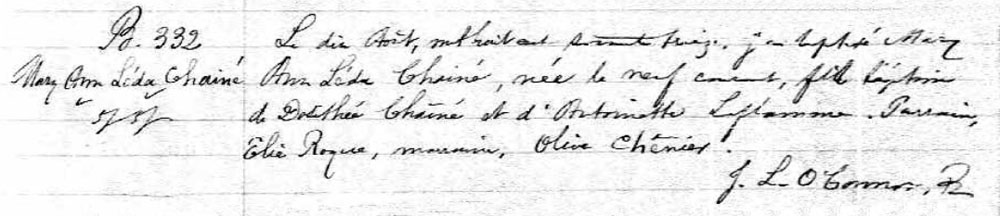 B. 332
Mary Ann Léda Chainé
Le dix Août, mil huit cent soixante treize, j'ai baptisé Mary
Ann Léda Chainé, née le neuf courant, fille légitime
de Dosithé Chainé et d'Antoinette Leflamme. Parrain,
Elie Roque, marraine, Olive Chénier.
J. L. O'Connor, Ptr